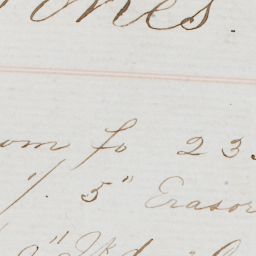 ones.
om fo 23
1/. 5" Erasor